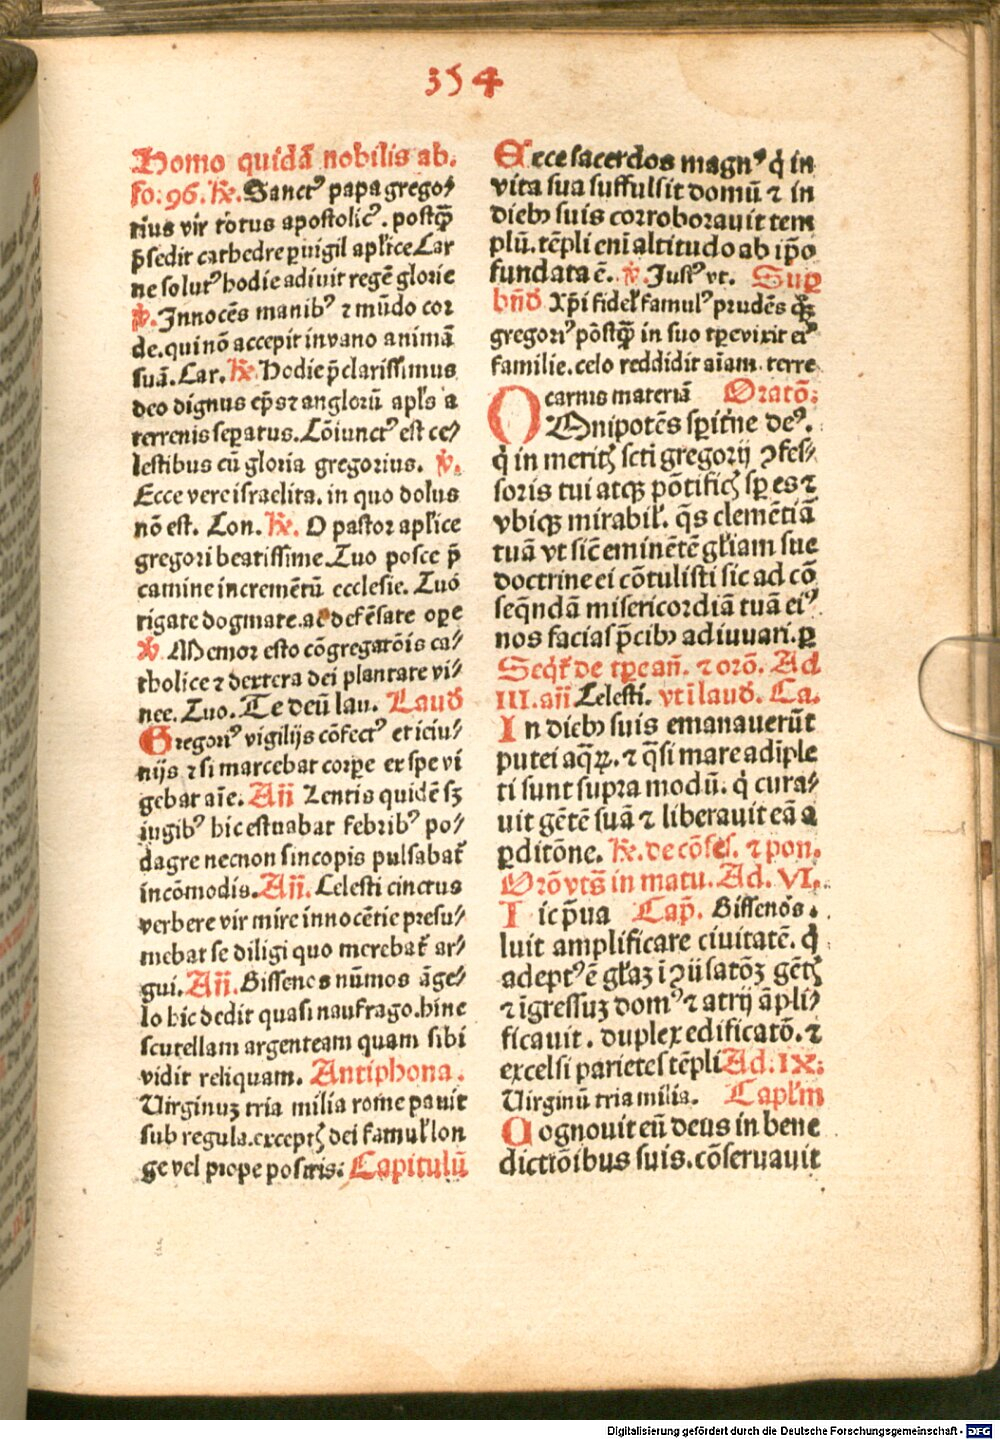 354
Homo quidā nobilis ab.
fo: 96. ℟. Sanctꝰ papa grego⸗
rius vir totus apostolicꝰ. postq̄ꝫ
p̄sedit cathedre puigil apl̓ice Car
ne solutꝰ hodie adiuit regē glorie
℣. Innocēs manibꝰ ⁊ mūdo cor
de. qui nō accepit in vano animā
suā. Car. ℟. Hodie p̄clarissimus
deo dignus ep̄s ⁊ anglorū apl̓s a
terrenis sepatus. Cōiunctꝰ est ce⸗
lestibus cū gloria gregorius. ℣.
Ecce vere israelita. in quo dolus
nō est. Con. ℟. O pastor apl̓ice
gregori beatissime. Tuo posce p̄
camine incremētū ecclesie. Tuo
rigate dogmate. ac defēsate ope
℣. Memor esto cōgregatōis ca⸗
tholice ⁊ dextera dei plantate vi⸗
nee. Tuo. Te deū lau. Laud̓
Gregoriꝰ vigilijs cōfectꝰ et ieiu⸗
nijs ⁊ si marcebat corpe ex spe vi
gebat aīe. Añ Lentis quidē sꝫ
iugibꝰ hic estuabat febribꝰ po⸗
dagre necnon sincopis pulsabat̄
incōmodis. Añ. Celesti cinctus
verbere vir mire innocētie presu⸗
mebat se diligi quo merebat̄ ar⸗
gui. Añ. Bissenos nūmos āge⸗
lo hic dedit quasi naufrago. hinc
scutellam argenteam quam sibi
vidit reliquam. Antiphona.
Virginuꝫ tria milia rome pauit
sub regula. exceptꝭ dei famul̓ lon
ge vel prope positis: Capitulū
Ecce sacerdos magnꝰ q̇ in
vita sua suffulsit domū ⁊ in
diebꝰ suis corroborauit tem
plū. tēpli eni altitudo ab ip̄o
fundata ē. ℣. Justꝰ vt. Sup
bn̄d̓ Xp̄i fidel̓ famulꝰ prudēs qꝫ
gregoriꝰ pōstq̄ꝫ in suo tpe vixit eiꝰ
familie. celo reddidit aīam. terre
carnis materiā Oratō:
OMnipotēs sp̄iterne deꝰ.
q̇ in meritꝭ scti gregorij ꝯfes⸗
soris tui atqꝫ pōtificꝭ sp es ⁊
vbiqꝫ mirabil̓. q̄s clemētiā
tuā vt sic eminētē gl̓iam sue
doctrine ei cōtulisti sic ad cō
seq̄ndā misericordiā tuā eiꝰ
nos facias p̄cibꝰ adiuuari. ꝑ
Seq̄t̓ de tpe añ. ⁊ orō. Ad
III. añ Celesti. vt ī laud̓. Ca.
In diebꝰ suis emanauerūt
putei aq̄ꝝ. ⁊ q̄si mare adīple
ti sunt supra modū. q̇ cura⸗
uit gētē suā ⁊ liberauit eā a
ꝑditōne. ℟. de cōfes. ⁊ pon.
Orō vts̄ in matu. Ad. VI.
I ic p̄ua Cap̄. Bissenos.
luit amplificare ciuitatē. q̇
adeptꝰ ē gl̓aꝫ ī ꝯūsatōꝫ gētꝭ
⁊ īgressuꝫ domꝰ ⁊ atrij āpli⸗
ficauit. duplex edificatō. ⁊
excelsi parietes tēpli Ad. IX:
Virginū tria milia. Capl̓m
Cognouit eū deus in bene
dictiōibus suis. cōseruauit
Digitalisierung gefördert durch die Deutsche Forschungsgemeinschaft - DFG